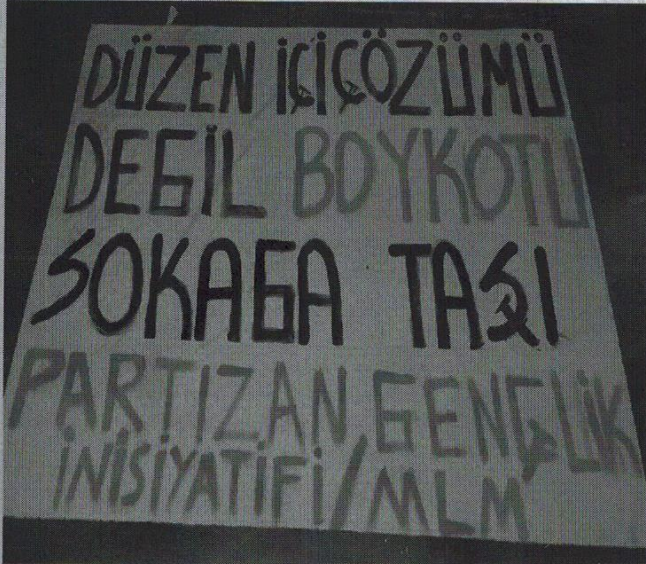 DÜZEN İÇİ ÇÖZÜMÜ
DEGİL BOYKOTU
SOKAGA TAŞI
PARTIZAN GENÇLİK
İNİSİYATİFİ/MLM